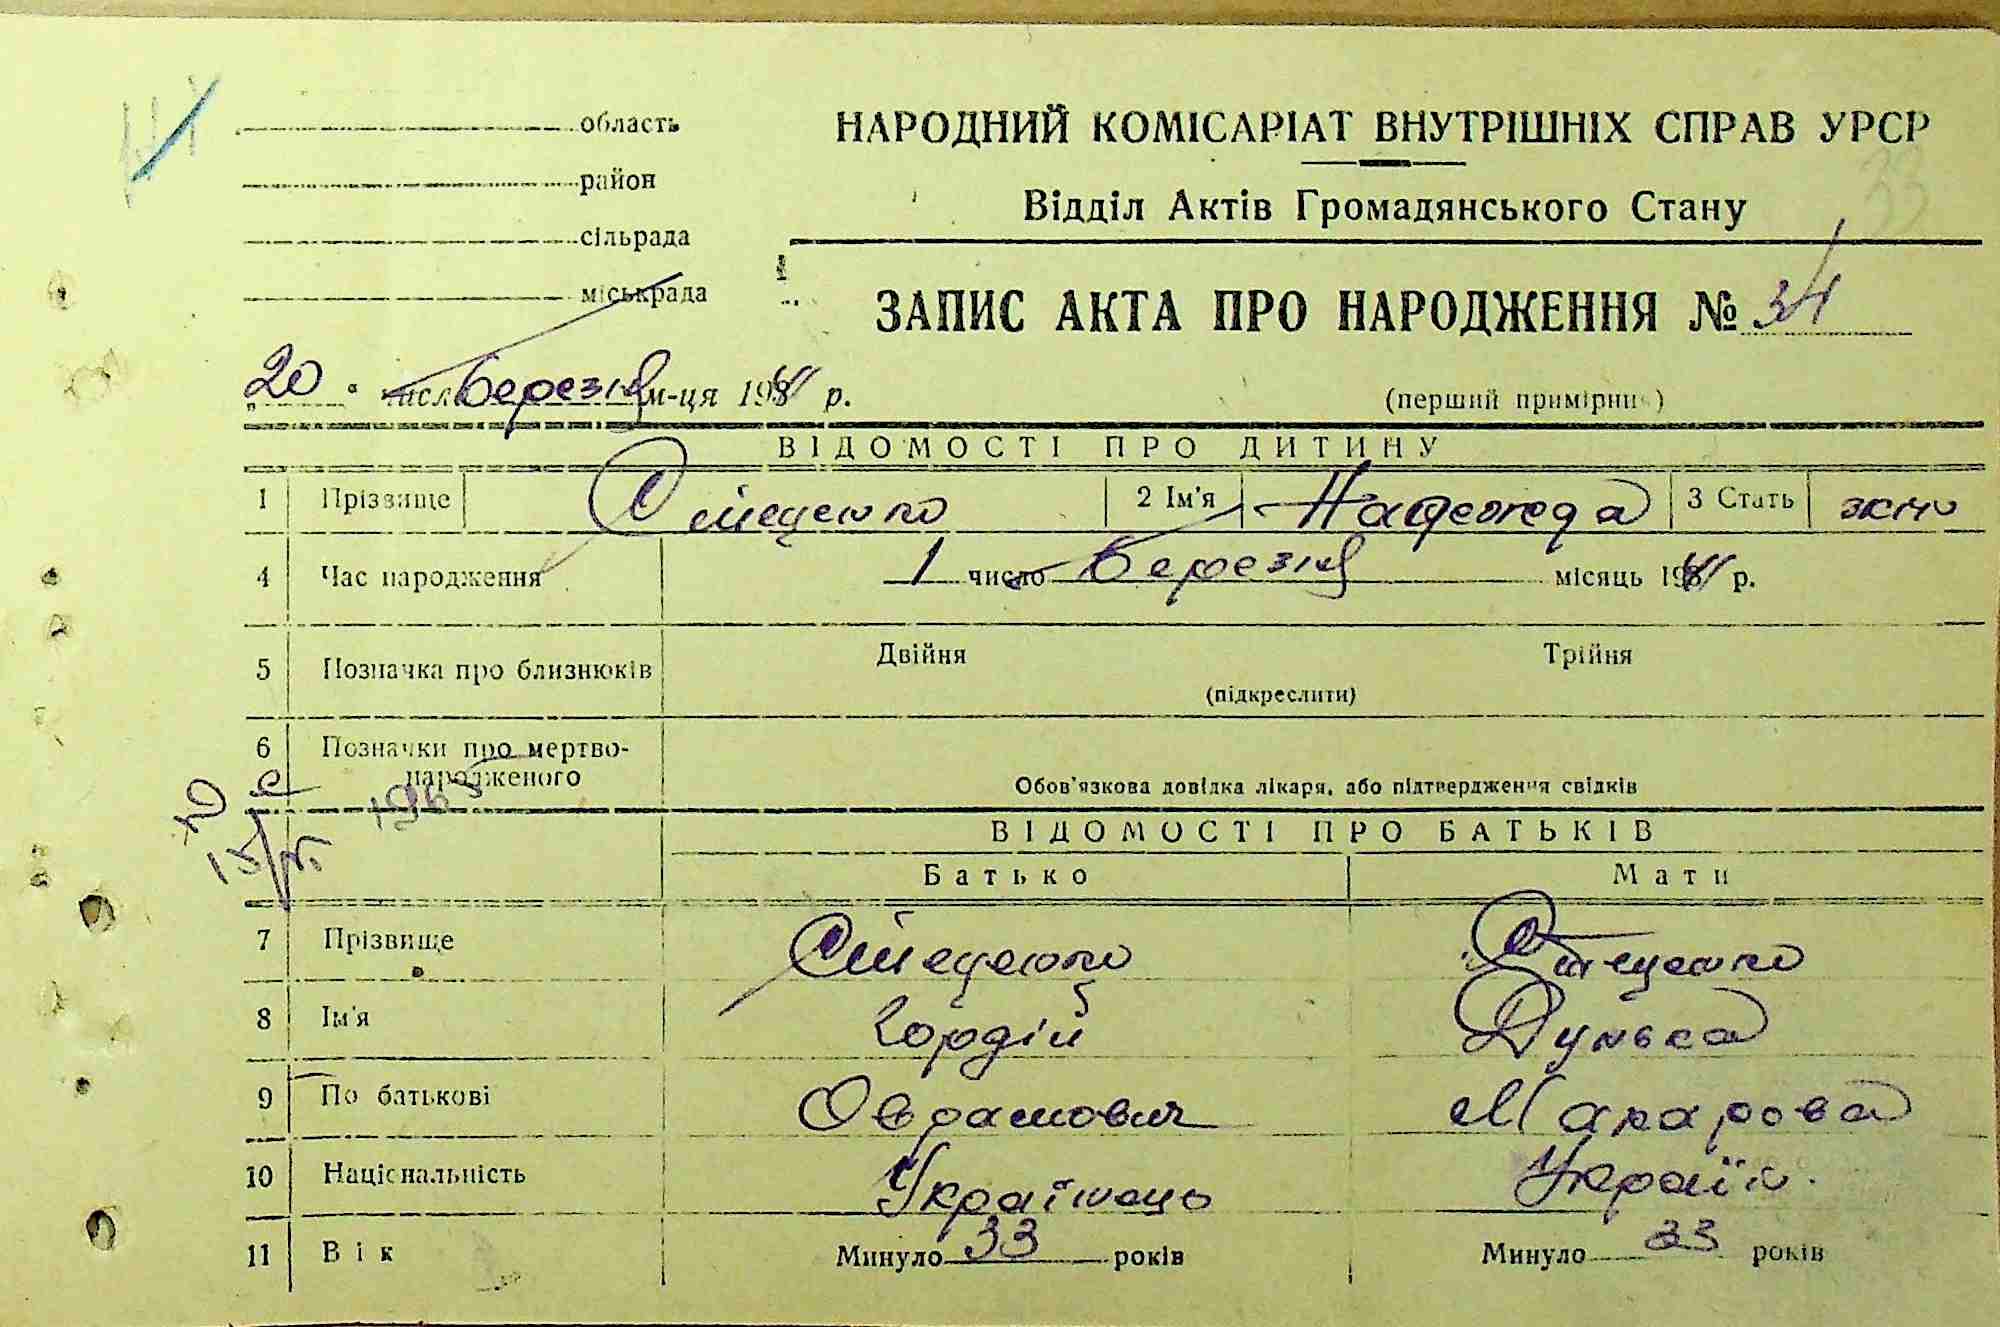 область
район
сільрада
міськрада
НАРОДНИЙ КОМІСАРІАТ ВНУТРІШНІХ СПРАВ УРСР
33
Відділ Актів Громадянського Стану
ЗАПИС АКТА ПРО НАРОДЖЕННЯ № 34
„20“ числа березня м-ця 1941 р.
(перший примірник)
ВІДОМОСТІ ПРО ДИТИНУ
1 Прізвище Стеценко 2 Ім'я Надежда 3 Стать жін
4 Час народження 1 число березня місяць 1941 р.
5 Позначка про близнюків Двійня Трійня
(підкреслити)
6 Позначки про мертво-
народженого
Обов'язкова довідка лікаря, або підтвердження свідків
1965
15/VI
ВІДОМОСТІ ПРО БАТЬКІВ
Батько Мати
7 Прізвище Стеценко Стеценко
8 Ім'я Гордій Дунька
9 По батькові Оврамович Макарова
10 Національність Українець Україн.
11 Вік Минуло 33 років Минуло 33 років